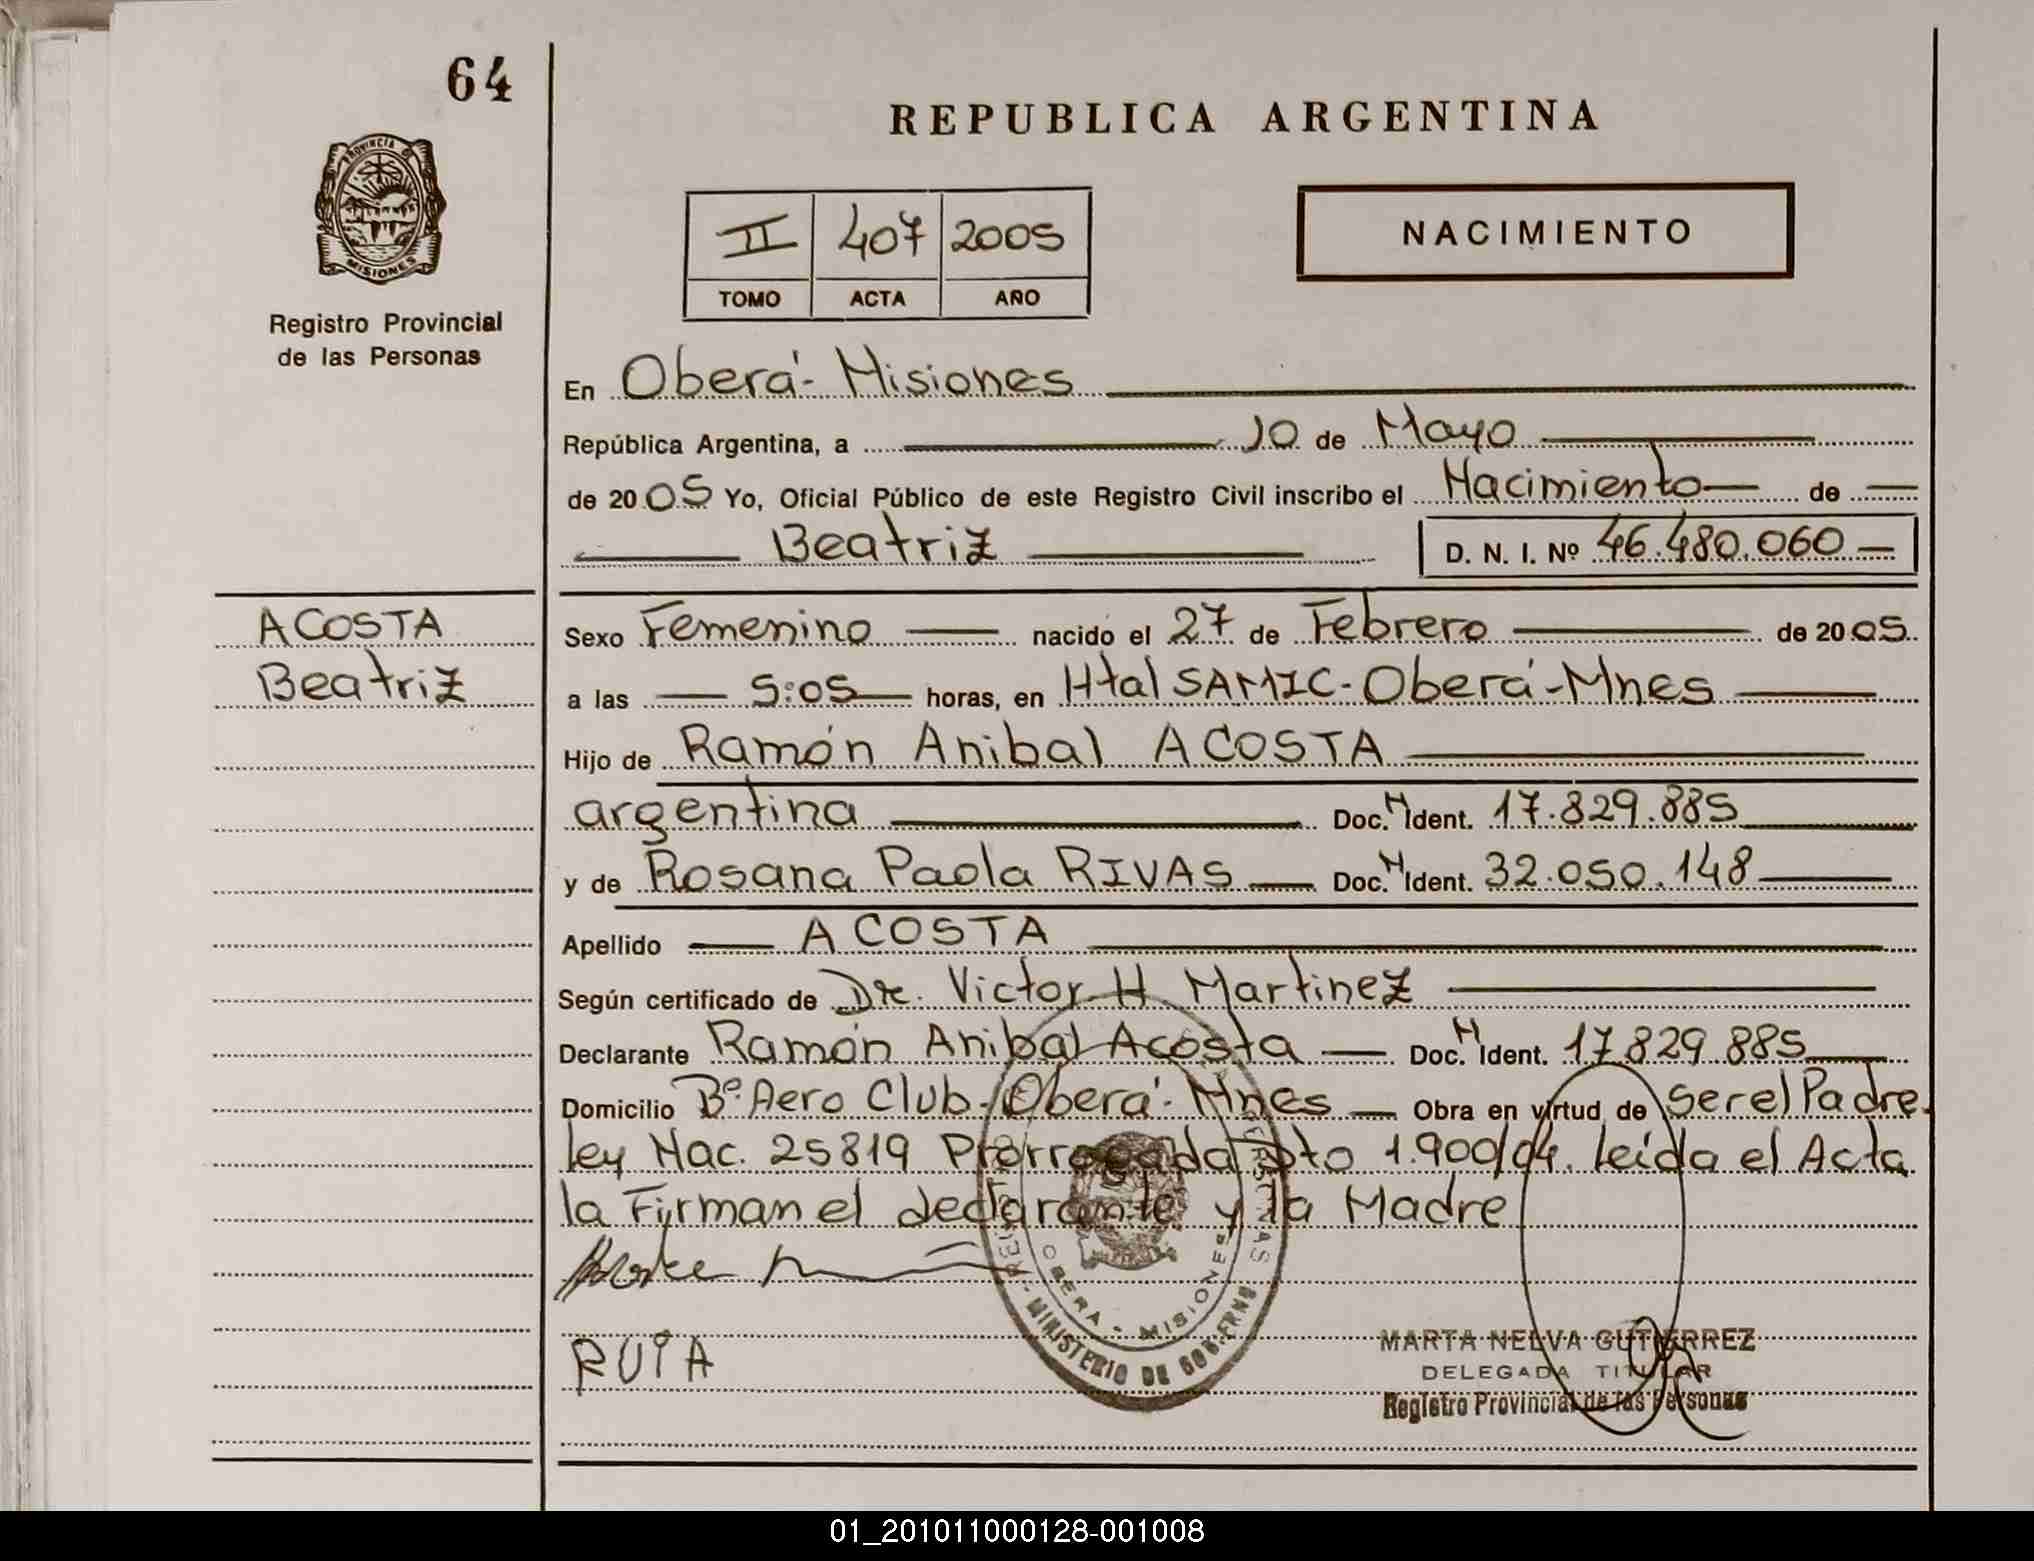 64
REPUBLICA ARGENTINA
PROVINCIA DE
MISIONES
Registro Provincial
de las Personas
II 407 2005
TOMO ACTA AÑO
NACIMIENTO
En Oberá - Misiones
República Argentina, a 10 de Mayo
de 2005 Yo, Oficial Público de este Registro Civil inscribo el Nacimiento de
Beatriz D. N. I. Nº 46.480.060
ACOSTA
Beatriz
Sexo Femenino nacido el 27 de Febrero de 2005
a las 5:05 horas, en Htal SAMIC - Oberá - Mnes
Hijo de Ramón Anibal ACOSTA
argentina Doc. M Ident. 17.829.885
y de Rosana Paola RIVAS Doc. M Ident. 32.050.148
Apellido ACOSTA
Según certificado de Dr. Victor H Martinez
Declarante Ramón Anibal Acosta Doc. M Ident. 17.829.885
Domicilio Bº Aero Club - Oberá - Mnes Obra en virtud de ser el Padre.
ley Nac. 25819 Prorrogada Dto 1.900/04. leída el Acta
la Firman el declarante y la Madre
OBERA - MISIONES
MINISTERIO DE GOBIERNO
MARTA NELVA GUTIERREZ
DELEGADA TITULAR
Registro Provincial de las Personas
01_201011000128-001008